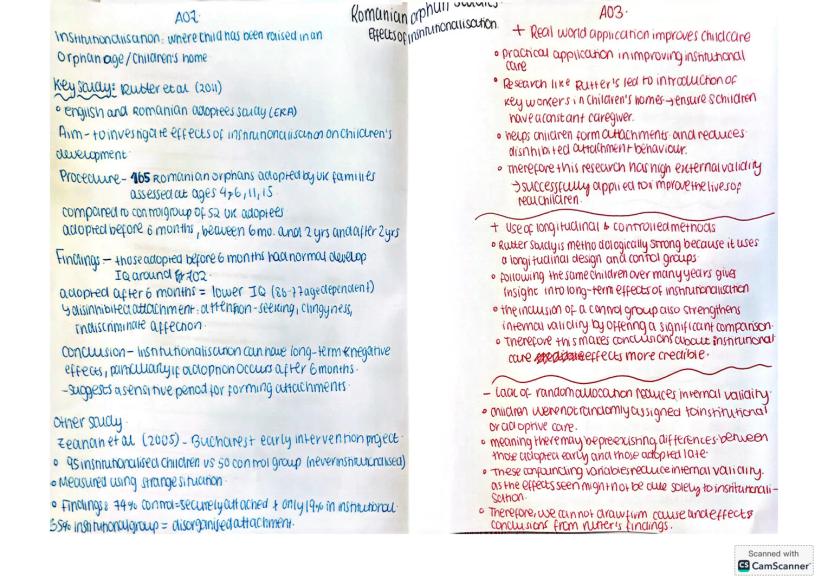 AO1
Romanian orphan studies
Effects of institutionalisation
Institutionalisation: where child has been raised in an
orphanage/children's home
Key study: Rutter et al (2011)
° english and Romanian adoptees study (ERA)
Aim - to investigate effects of institutionalisation on children's
development
Procedure - 165 Romanian orphans adopted by UK families
assessed at ages 4, 6, 11, 15
compared to control group of 52 UK adoptees
adopted before 6 months, between 6mo. and 2 yrs and after 2yrs
Findings - those adopted before 6 months had normal develop
IQ around 102.
adopted after 6 months = lower IQ (86-77 age dependent)
↳ disinhibited attachment: attention-seeking, clingyness,
indiscriminate affection.
Conclusion - Institutionalisation can have long-term & negative
effects, particularly if adoption occurs after 6 months.
- suggests a sensitive period for forming attachments.
Other study.
Zeanah et al (2005) - Bucharest early intervention project.
° 95 institutionalised children vs 50 control group (never institutionalised)
• Measured using strange situation.
° Findings: 74% control = securely attached + only 19% in institutional.
institutional group = disorganised attachment.
AO3.
+ Real world application improves childcare
° practical application in improving institutional
care
° Research like Rutter's led to introduction of
key workers in children's homes → ensures children
have a constant caregiver.
° helps children form attachments and reduces
disinhibited attachment behaviour.
° therefore this research has high external validity
→ successfully applied to improve the lives of
real children.
+ Use of longitudinal & controlled methods
° Rutter study is methodologically strong because it uses
a longitudinal design and control groups
° following the same children over many years give
insight into long-term effects of institutionalisation
° the inclusion of a control group also strengthens
internal validity by offering a significant comparison.
° Therefore this makes conclusions about institutional
care effects more credible.
- Lack of random allocation reduces internal validity.
° children were not randomly assigned to institutional
or adoptive care.
° meaning there may be preexisting differences between
those adopted early and those adopted late.
° These confounding variables reduce internal validity.
as the effects seen might not be due solely to institutionali-
sation.
° Therefore, we cannot draw firm cause and effects
conclusions from rutter's findings.
Scanned with
CS CamScanner